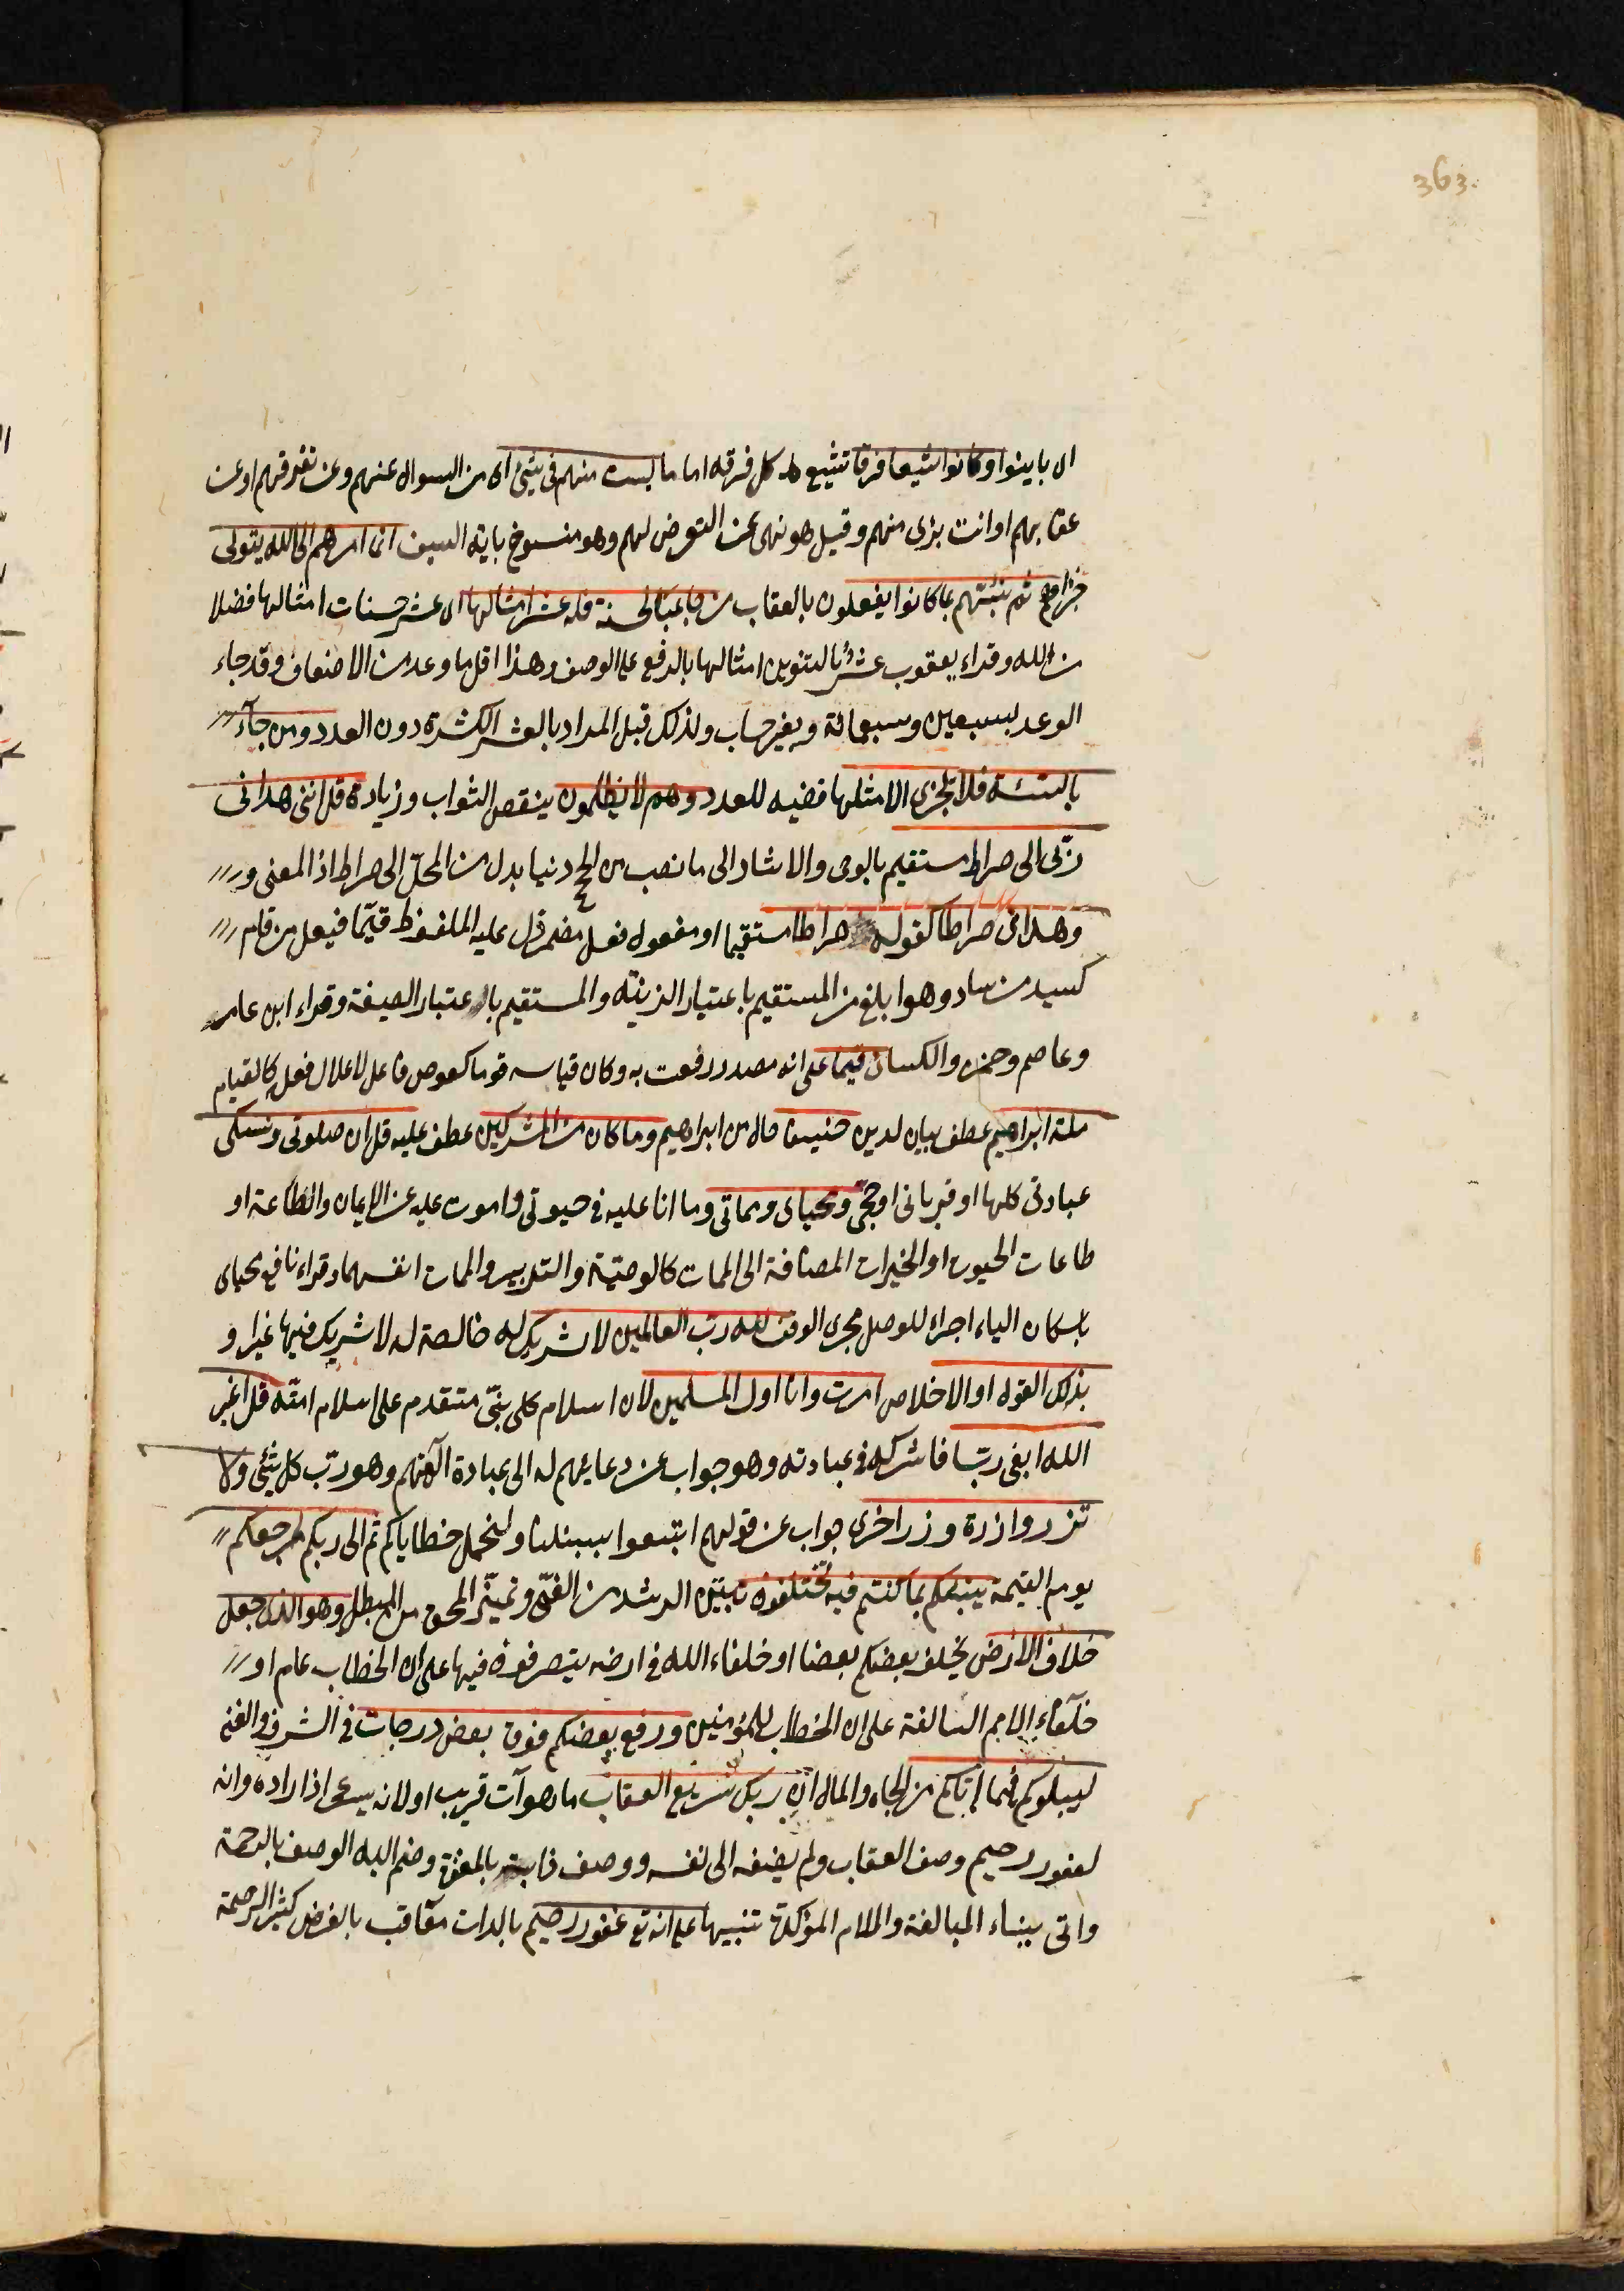 363.
اى باينوا وكانوا شيعا فرقا تتشيع كل فرقه اماما لست منهم فى شئ اى من السوال عنهم وعن تفرقهم او عن
عقابهم او انت برى منهم وقيل هو نهى عن التعرض لهم وهو منسوخ باية السيف انما امرهم الى الله يتولى
جزاهم ثم ينبئهم بما كانوا يفعلون بالعقاب من جاء بالحسنة فله عشر امثالها اى عشر حسنات امثالها فضلا
من الله وقراء يعقوب عشر بالتنوين امثالها بالرفع على الوصف وهذا اقل ما وعد من الاضعاف وقد جاء
الوعد بسبعين وسبعمائة وبغير حساب ولذلك قيل المراد بالعشر الكثرة دون العدد ومن جآء
بالسيئة فلا يجزى الا مثلها قضيه للعدد وهم لا يظلمون ينقص الثواب وزيادة قل اننى هدانى
ربى الى صراط مستقيم بالوحى والارشاد الى ما نصب من الحج دينا بدل من المحل الى صراط اذ المعنى و
وهدانى صراطا كقوله صراطا مستقيما او مفعول فعل مضمر دل عليه الملفوظ قيما فيعل من قام
كسيد من ساد وهو ابلغ من المستقيم باعتبار الزنة والمستقيم باعتبار الصيغة وقراء ابن عامر
وعاصم وحمزه والكسائى قيما على انه مصدر رفعت به وكان قياسه قوما كعوض فاعل لاعلال فعله كالقيام
ملة ابراهيم عطف بيان لدين حنيفا حال من ابراهيم وما كان من المشركين عطف عليه قل ان صلوتى ونسكى
عبادتى كلها او قربانى او حجى ومحياى ومماتى وما انا عليه فى حيوتى واموت عليه من الايمان والطاعة او
طاعات الحيوة او الخيرات المضافة الى الممات كالوصية والتدبير والممات انفسهما وقراء نافع محياى
باسكان الياء اجراء للوصل مجرى الوقف لله رب العالمين لا شريك له خالصة له لا شريك فيها غيرا و
بذلك القول او الاخلاص امرت وانا اول المسلمين لان اسلام كل نبى متقدم على اسلام امته قل اغير
الله ابغى ربا فاشركه فى عبادته وهو جواب عن دعايهم له الى عبادة آلهتهم وهو رب كل شئ ولا
تزر وازرة وزر اخرى جواب عن قولهم اتبعوا سبيلنا ولنحمل خطاياكم ثم الى ربكم مرجعكم
يوم القيمة ينبئكم بما كنتم فيه تختلفون بتبين الرشد من الغى وتميز المحق من المبطل وهو الذى جعل
خلائف الارض يخلف بعضكم بعضا او خلفاء الله فى ارضه يتصرفون فيها على ان الخطاب عام او
خلفاء الامم السالفة على ان الخطاب للمؤمنين ورفع بعضكم فوق بعض درجات فى الشرف والغنى
ليبلوكم فيما اتاكم من الجاه والمال ان ربك سريع العقاب ما هو آت قريب او لانه يسرع اذا اراده وانه
لغفور رحيم وصف العقاب ولم يضفه الى نفسه ووصف ذاته بالمغفرة وضم اليه الوصف بالرحمة
واتى ببناء المبالغة واللام المؤكدة تنبيها على انه تع غفور رحيم بالذات معاقب بالعرض كثير الرحمة